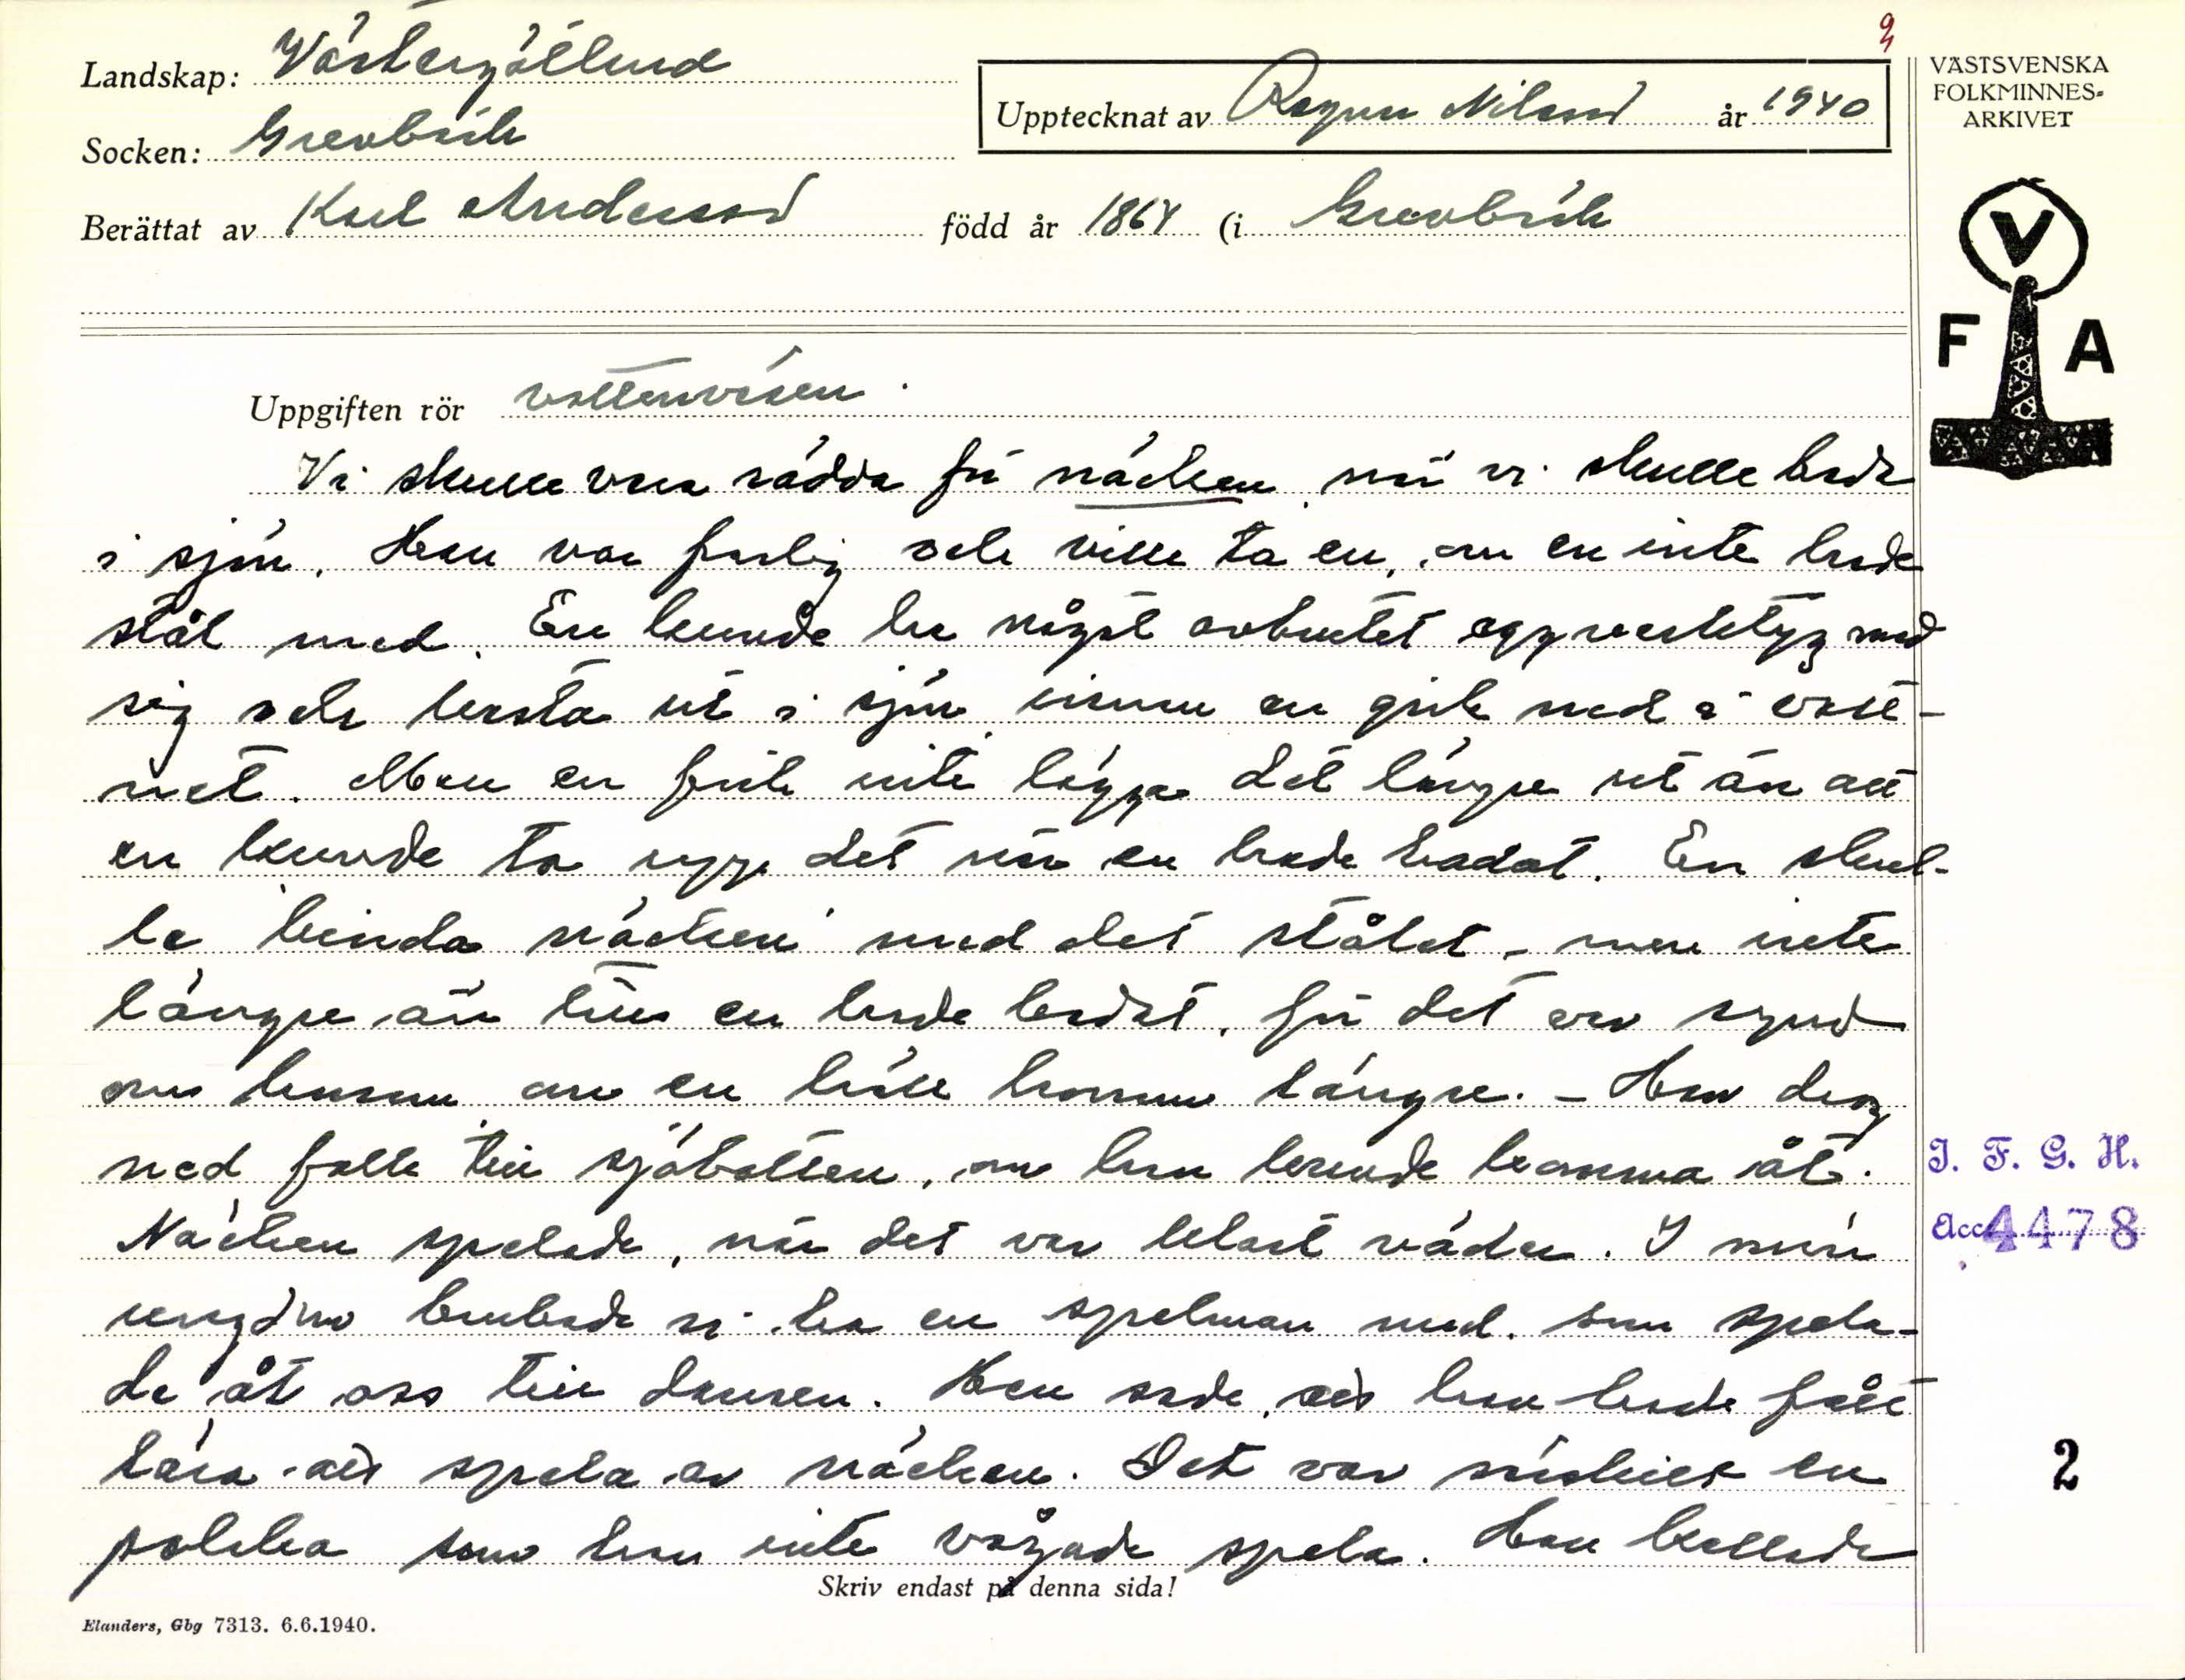 9
Landskap: Västergötland
Upptecknat av Ragnar Nilsson år 1940
Socken: Grevbäck
Berättat av Karl Andersson född år 1864 (i Grevbäck
VÄSTSVENSKA
FOLKMINNES-
ARKIVET
V
F A
Uppgiften rör vattenväsen.
Vi skulle vara rädda för näcken, när vi skulle bada
i sjön. Han var farlig och ville ta en, om en inte hade
stål med. En kunde ha något avbrutet eggverktyg med
sig och kasta ut i sjön, innan en gick ned i vatt-
net. Men en fick inte lägga det längre ut än att
en kunde ta upp det när en hade badat. En skul-
le binda näcken med det stålet, men inte
längre än till en hade badat, för det var synd
om honom, om en höll honom längre. - Han drog
ned folk till sjöbotten, om han kunde komma åt.
Näcken spelade, när det var blåst väder. I min
ungdom brukade vi ha en spelman med, som spela-
de åt oss till dansen. Han sade, att han hade fått
lära att spela av näcken. Det var särskilt en
polska som han inte vågade spela. Han kallade
J. F. G. H.
Acc. 4478
2
Skriv endast på denna sida!
Elanders, Gbg 7313. 6.6.1940.